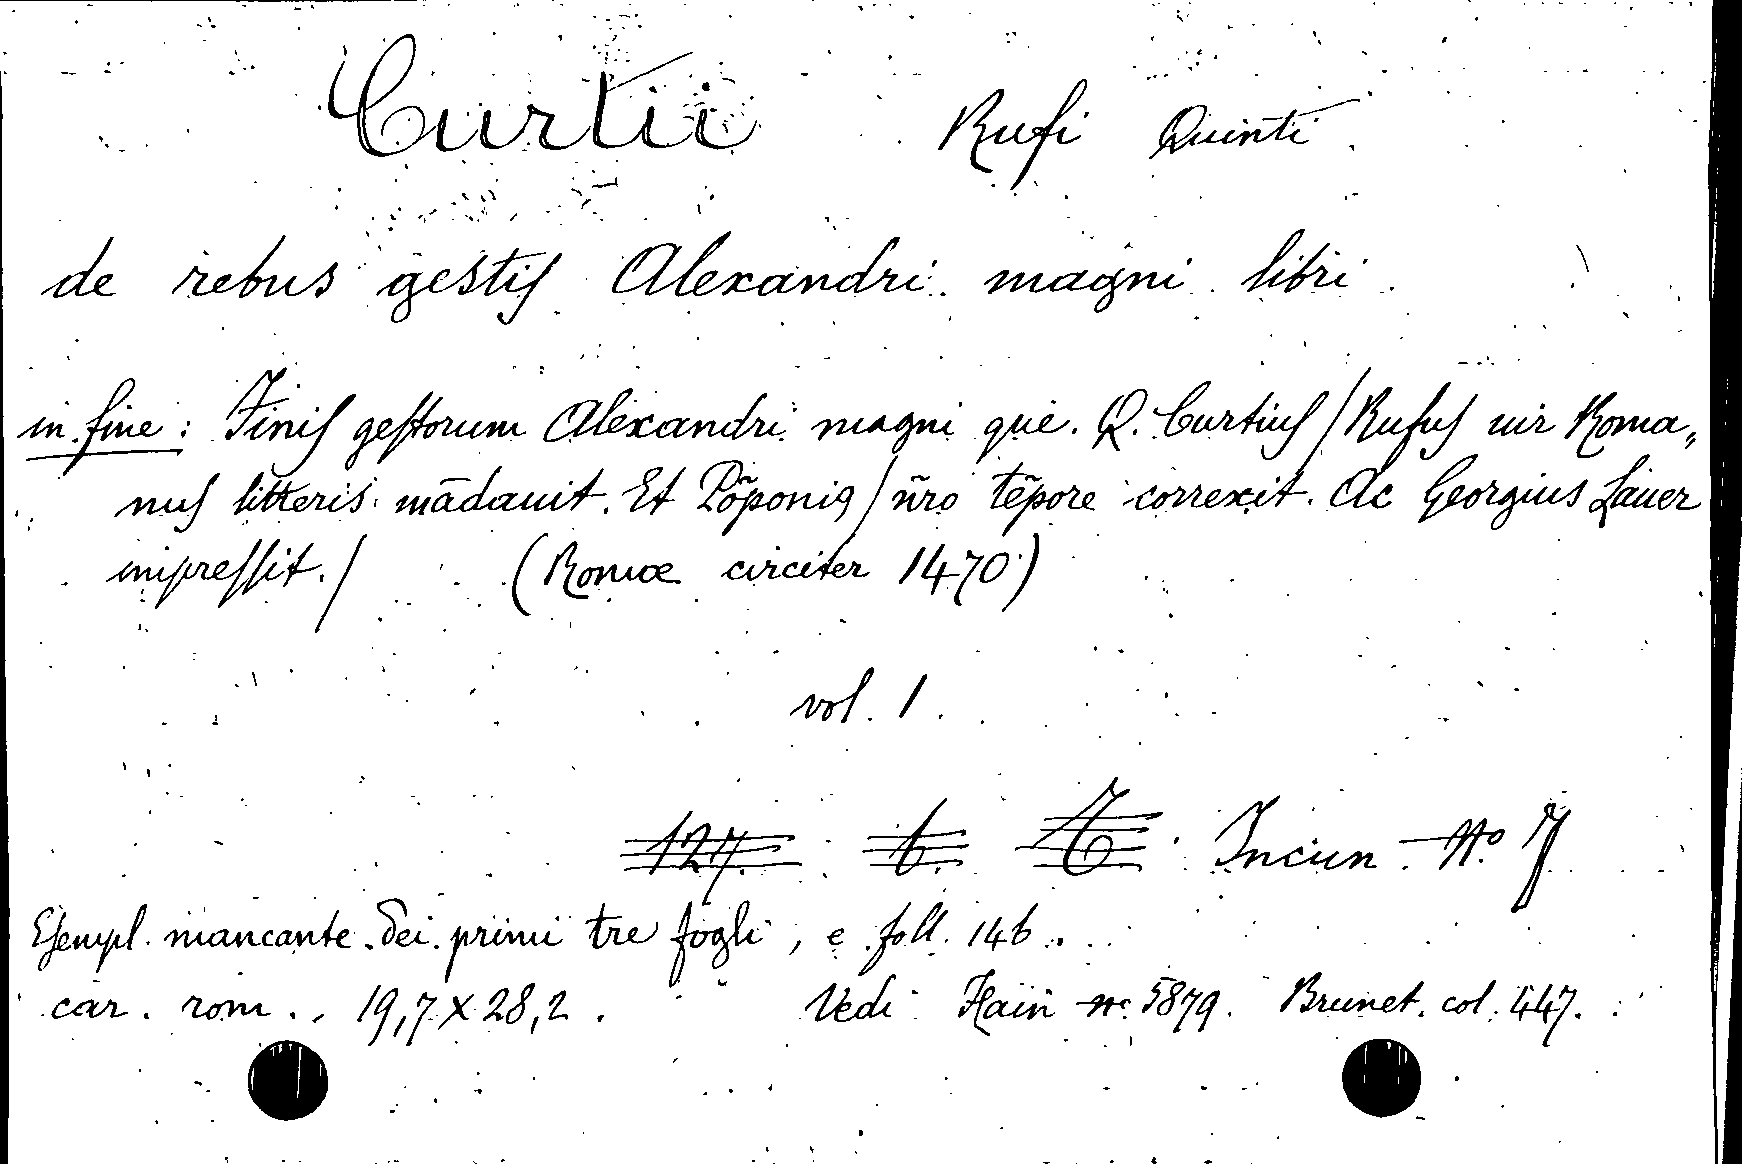 Curtii Rufi Quinti
de rebus gestiſ Alexandri magni libri
in fine: Finiſ geſtorum Alexandri magni que. Q. Curtiuſ / Rufuſ uir Roma„
nuſ litteris mādauit. Et Põponiꝯ / ñro tēpore correxit. Ac Georgius Lauer
impreſſit. / (Romæ circiter 1470)
vol. 1.
127. 6. Incun. No 7
Esempl. mancante dei primi tre fogli, e foll. 146.
car. rom. 19,7 X 28,2. Vedi Hain no. 5879. Brunet. col. 447.